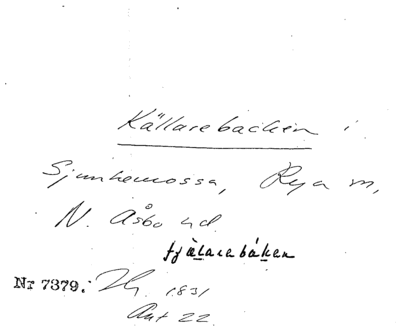 Källarebacken i
Sjunkemossa, Rya sn,
N. Åsbo hd.
tjælarebáken
Nr 7379. 1831
Akt 22